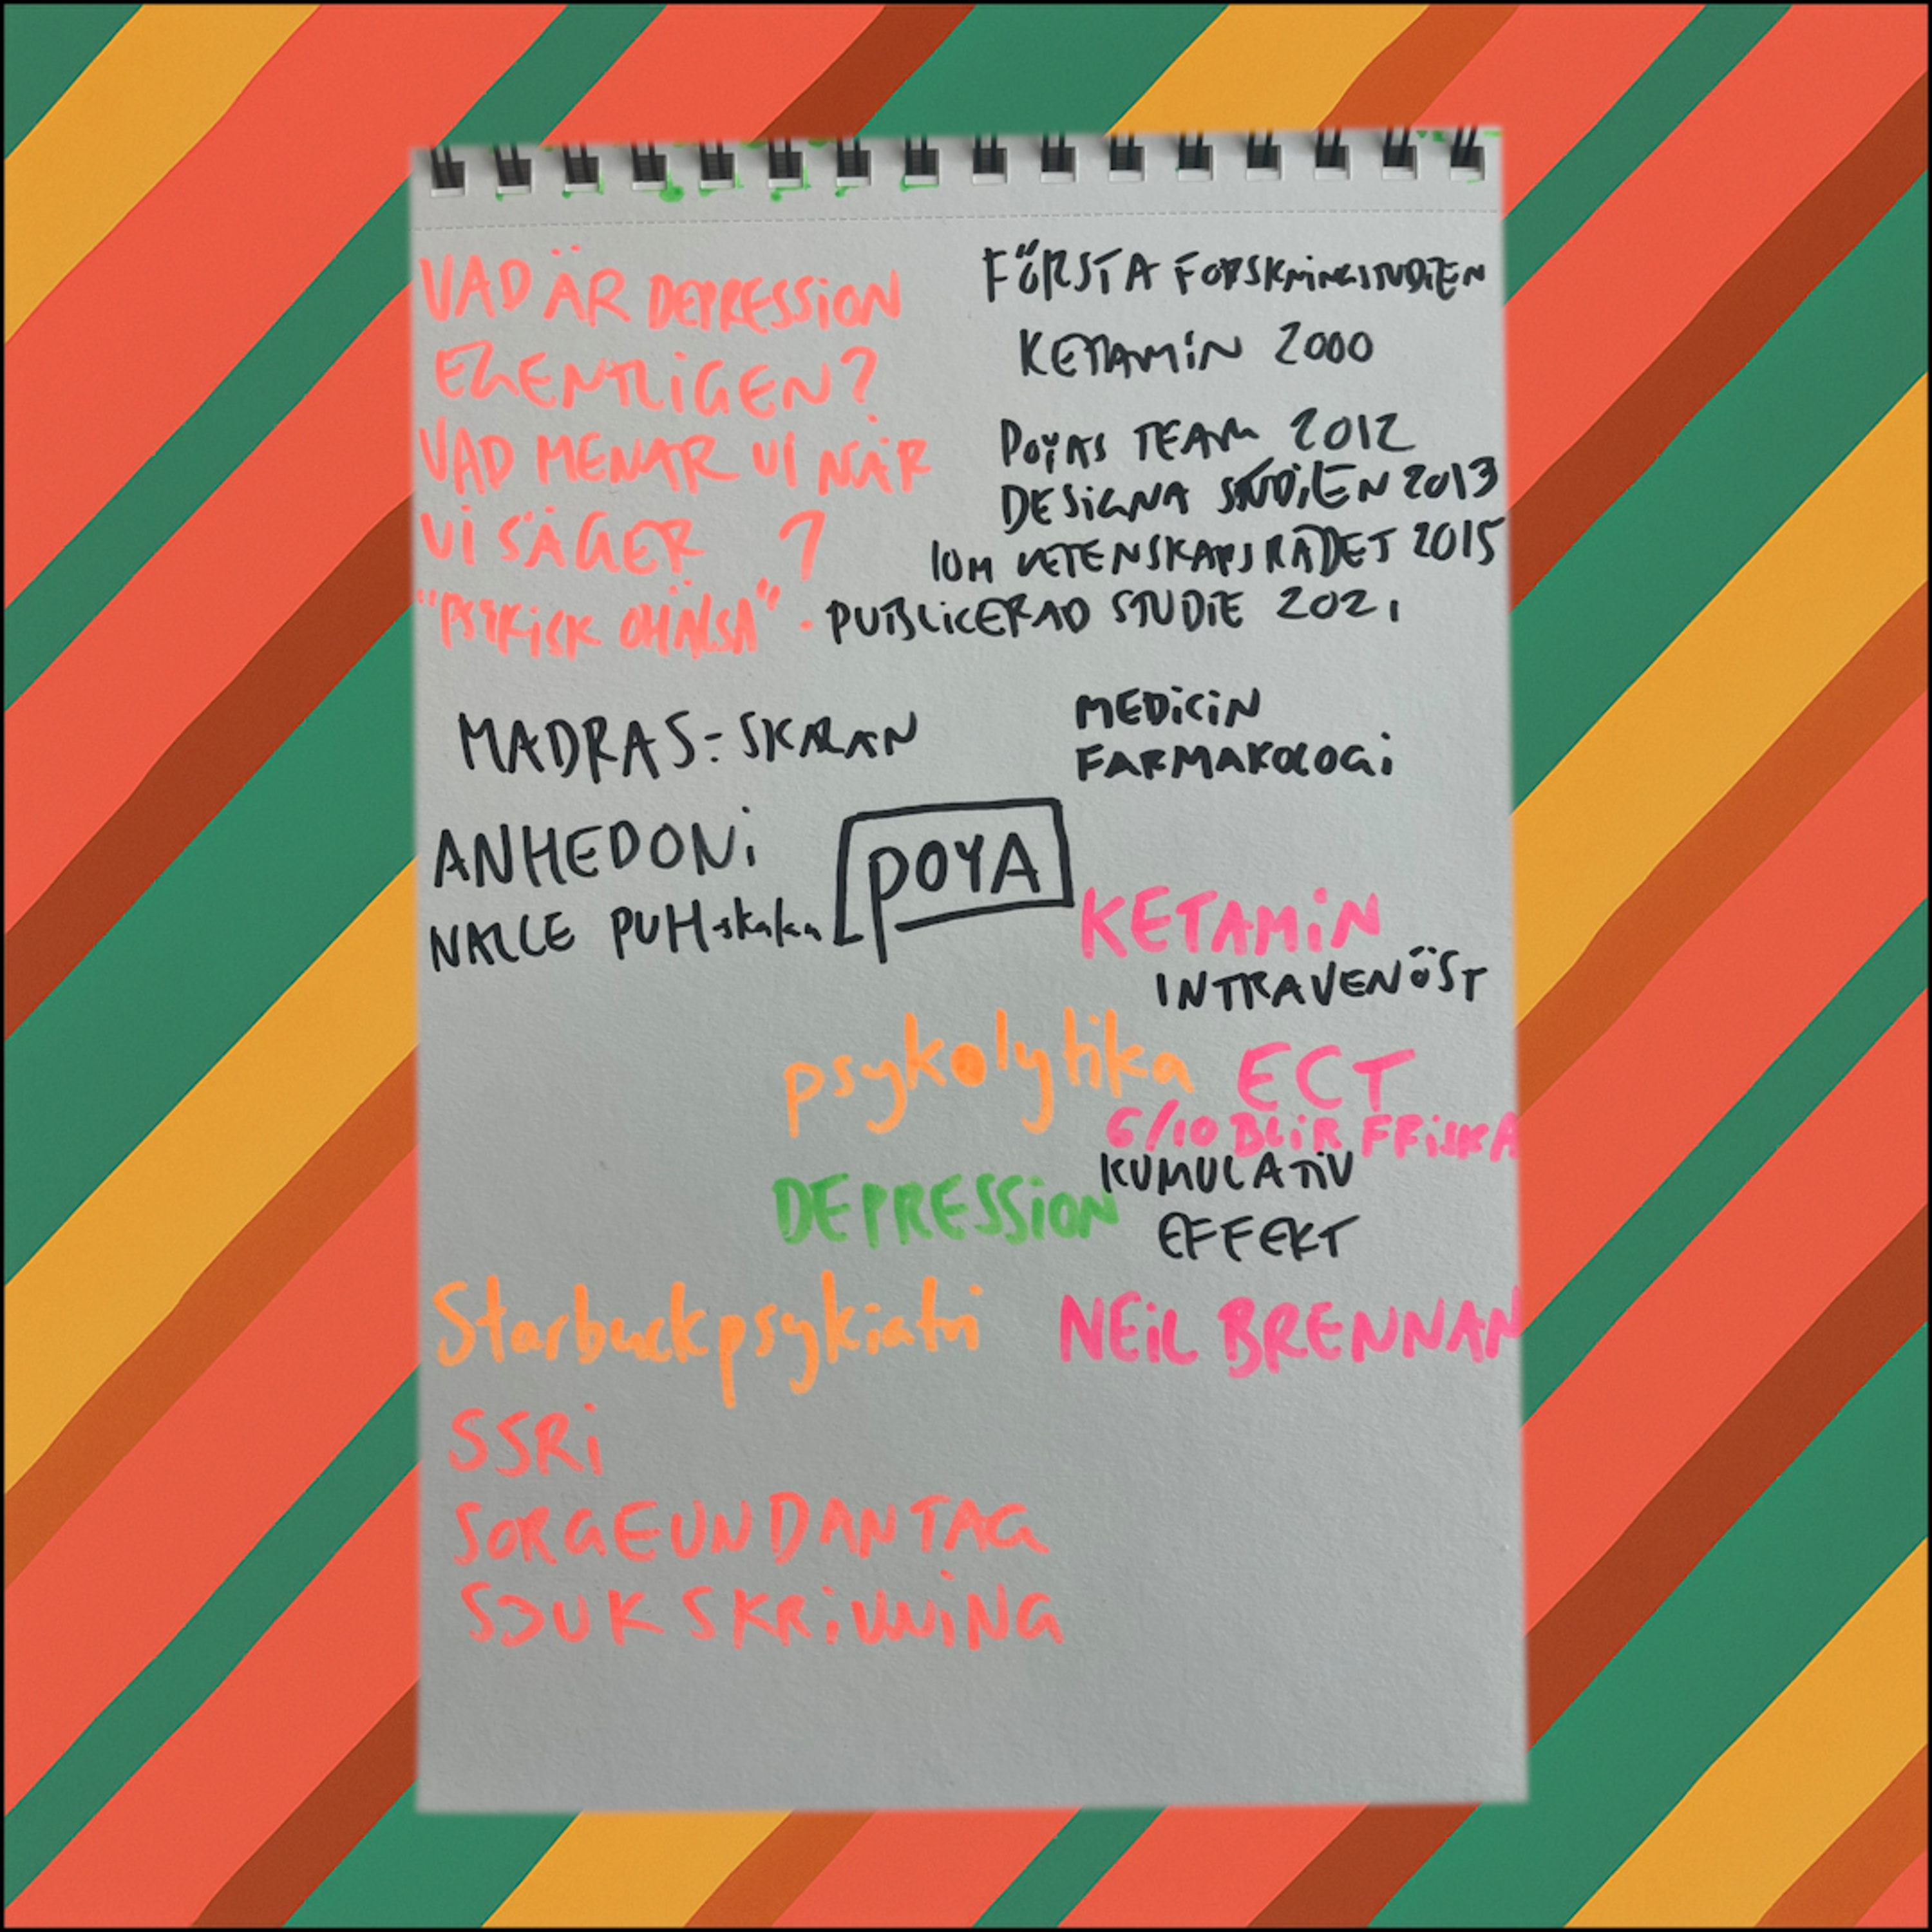 VAD ÄR DEPRESSION
EGENTLIGEN?
VAD MENAR VI NÄR
VI SÄGER ?
"PSYKISK OHÄLSA" .
FÖRSTA FORSKNINGSTUDIEN
KETAMIN 2000
POYAS TEAM 2012
DESIGNA STUDIEN 2013
10M VETENSKAPSRÅDET 2015
PUBLICERAD STUDIE 2021
MADRAS-SKALAN
MEDICIN
FARMAKOLOGI
ANHEDONI
NALLE PUH-skalan
POYA
KETAMIN
INTRAVENÖST
psykolytika
ECT
6/10 BLIR FRISKA
KUMULATIV
EFFEKT
DEPRESSION
Starbuckpsykiatri
NEIL BRENNAN
SSRI
SORGEUNDANTAG
SJUKSKRIVNING